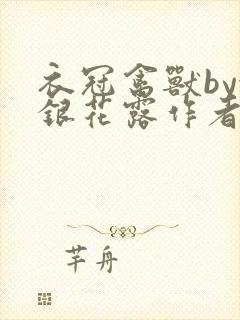 衣冠禽獸by
銀花露作者
芊舟